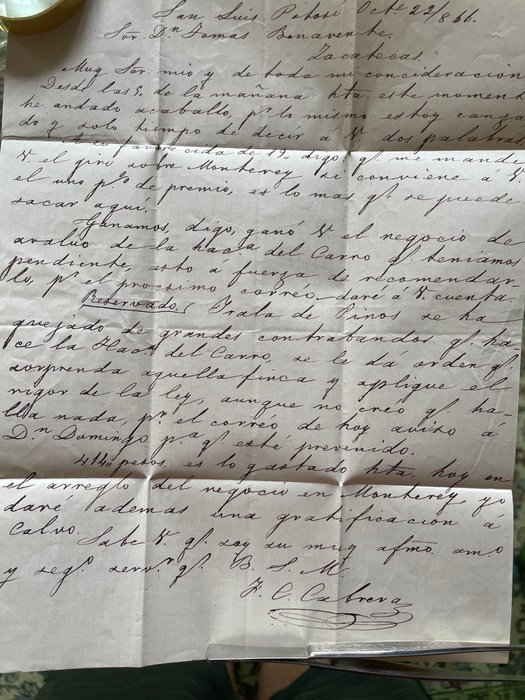 San Luis Potosí Octe 22/866.
Sor. Dn Tomas Benavente.
Zacatecas.
Muy Sor. mio y de toda mi concideración
Desde las 5 de la mañana hta. este momento
he andado acaballo, pr. lo mismo estoy cansa
do y solo tiempo de decir a V. dos palabras
A su favorecida de 19. digo: q. me mande
V. el giro sobre Monterey si conviene á V.
el uno ps. de premio, es lo mas q. se puede
sacar aquí.
Ganamos, digo, ganó V. el negocio de
avalúo de la hacda del Carro q. teniamos
pendiente, esto á fuerza de recomendar
lo, pr. el procsimo correo daré a V. cuenta.
Reservado. Trala de Pinos se ha
quejado de grandes contrabandos q. ha
ce la Hacda del Carro, se le dá orden q.
sorprenda aquella finca y aplique el
rigor de la ley, aunque no creo q. ha-
lla nada, pr. el correo de hoy aviso á
Dn Domingo pa q. esté prevenido.
414,, pesos es lo gastado hta hoy en
el arreglo del negocio en Monterey, yo
daré ademas una gratificacion a
Calvo.
Sabe V. q. soy su muy afmo. amo.
y sego. servr. q. B. S. M.
F. C. Cabrera